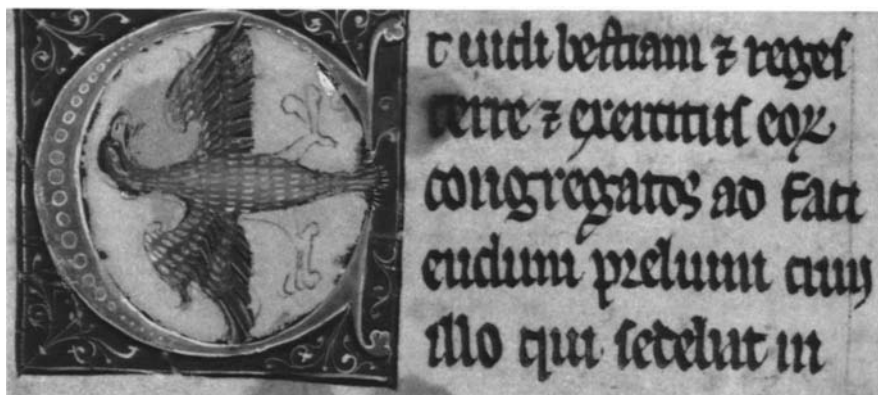 Et uidi bestiam ⁊ reges
terre ⁊ exercitus eoꝝ
congregatos ad faci
endum prelium cum
illo qui sedebat in